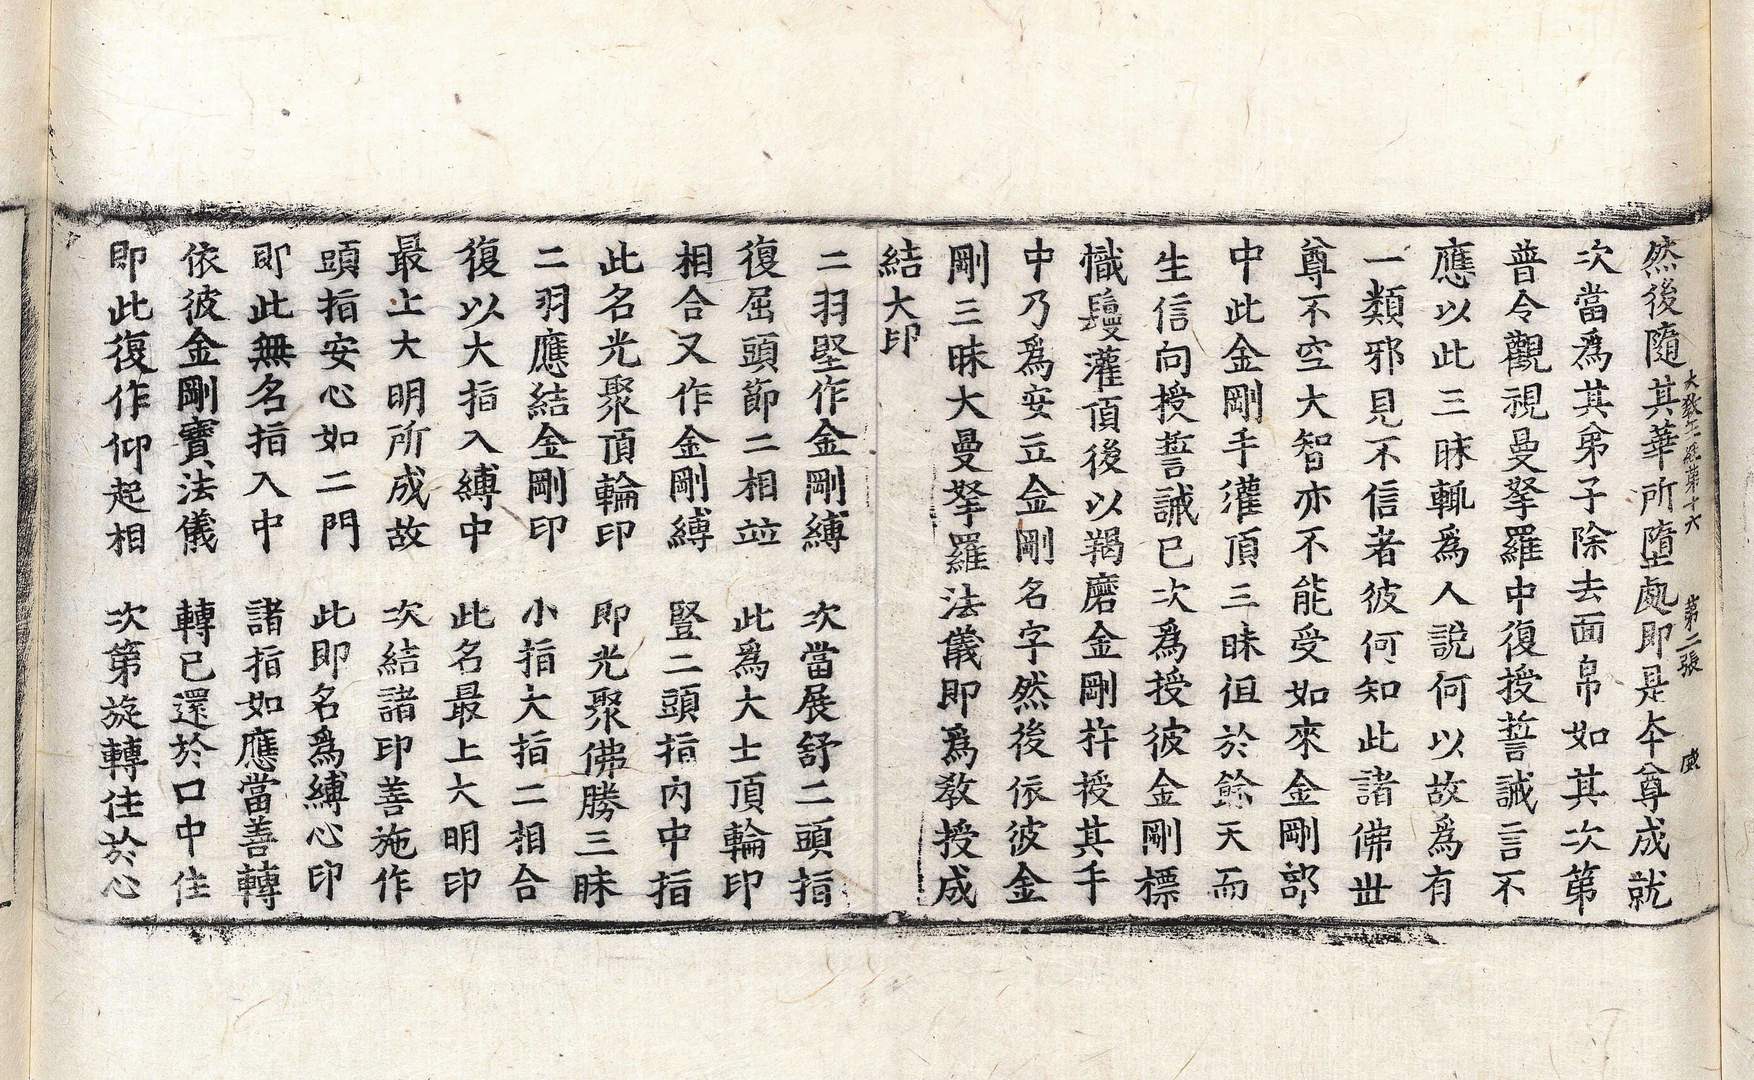 然後隨其華所墮處即是本尊成就
大教王經第十六 第二張 風
次當爲其弟子除去面帛如其次第
普令觀視曼拏羅中復授誓誡言不
應以此三昧輒爲人說何以故爲有
一類邪見不信者彼何知此諸佛世
尊不空大智亦不能受如來金剛部
中此金剛手灌頂三昧但於餘天而
生信向授誓誡已次爲授彼金剛標
幟鬘灌頂後以羯磨金剛杵授其手
中乃爲安立金剛名字然後依彼金
剛三昧大曼拏羅法儀即爲教授成
結大印
二羽堅作金剛縛 次當展舒二頭指
復屈頭節二相並 此爲大士頂輪印
相合又作金剛縛 豎二頭指內中指
此名光聚頂輪印 即光聚佛勝三昧
二羽應結金剛印 小指大指二相合
復以大指入縛中 此名最上大明印
最上大明所成故 次結諸印善施作
頭指安心如二門 此即名爲縛心印
即此無名指入中 諸指如應當善轉
依彼金剛寶法儀 轉已還於口中住
即此復作仰起相 次第旋轉住於心